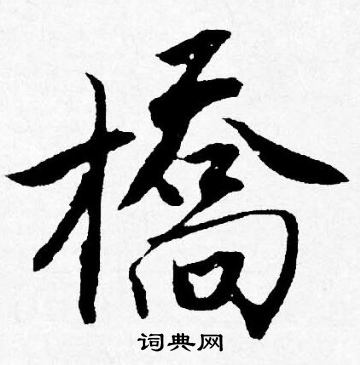 橋
词典网